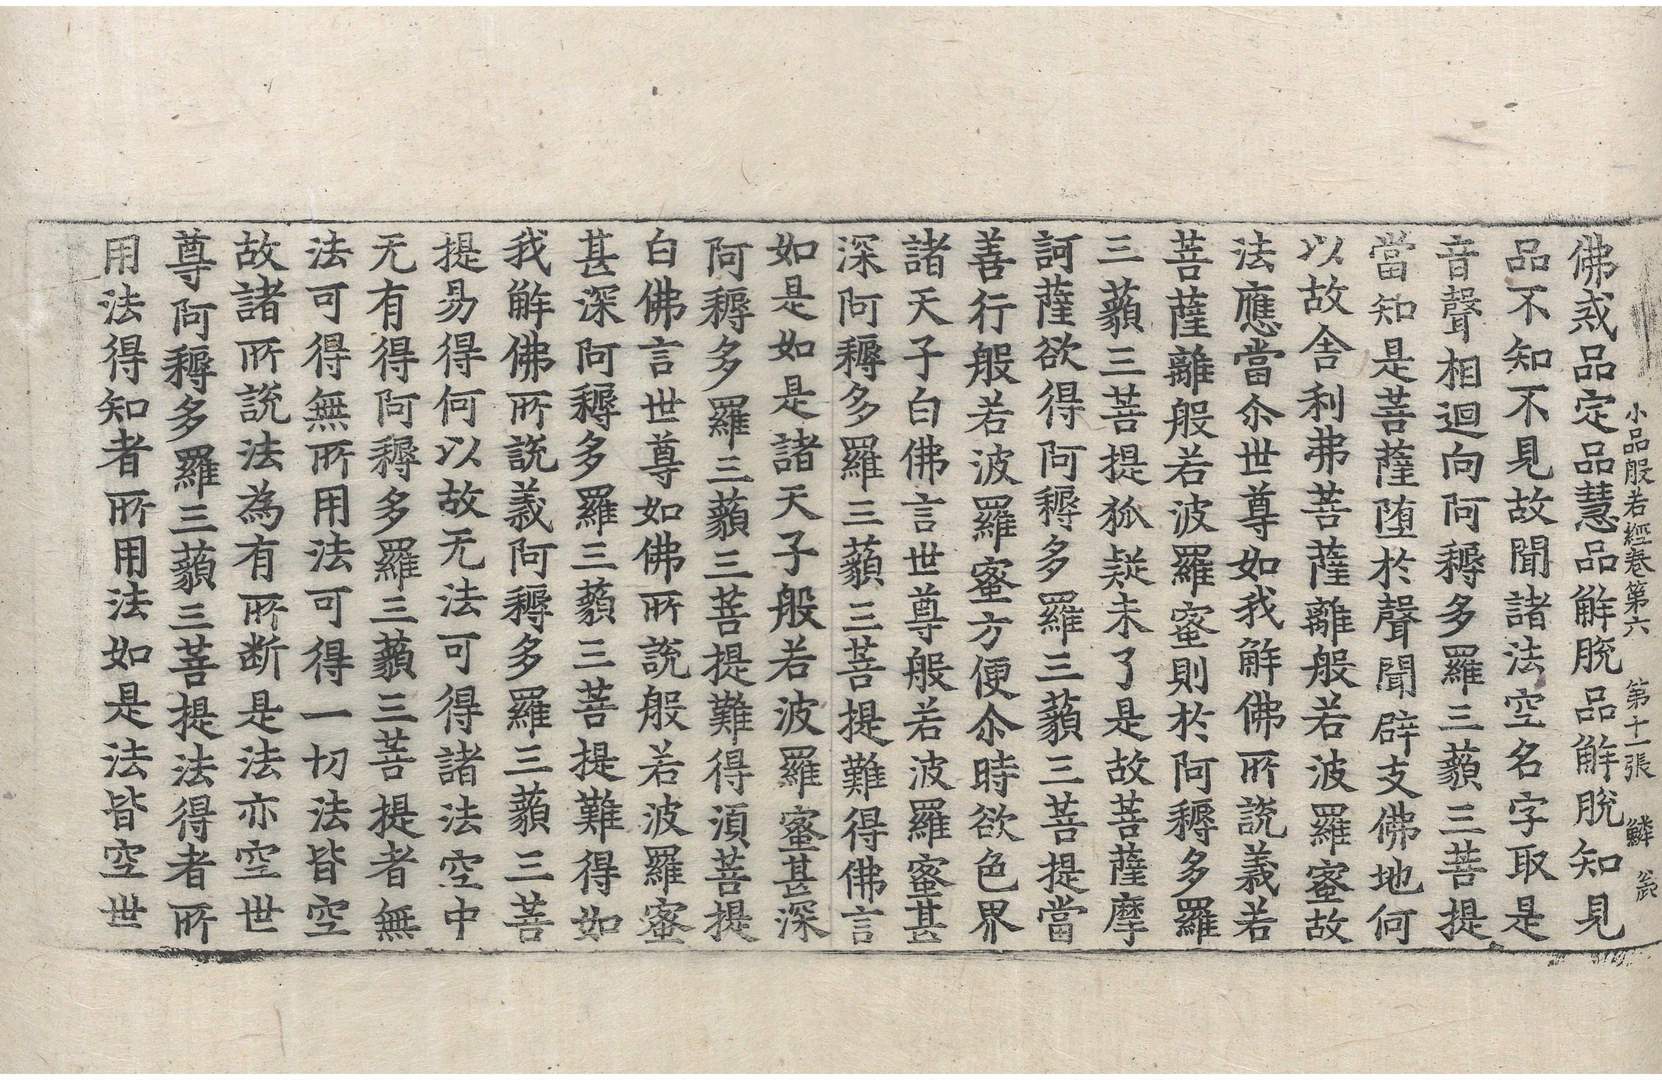 小品般若經卷第六 第十一張 鱗
佛戒品定品慧品解脫品解脫知見
品不知不見故聞諸法空名字取是
音聲相迴向阿耨多羅三藐三菩提
當知是菩薩堕於聲聞辟支佛地何
以故舍利弗菩薩離般若波羅蜜故
法應當尒世尊如我解佛所說義若
菩薩離般若波羅蜜則於阿耨多羅
三藐三菩提狐疑未了是故菩薩摩
訶薩欲得阿耨多羅三藐三菩提當
善行般若波羅蜜方便尒時欲色界
諸天子白佛言世尊般若波羅蜜甚
深阿耨多羅三藐三菩提難得佛言
如是如是諸天子般若波羅蜜甚深
阿耨多羅三藐三菩提難得湏菩提
白佛言世尊如佛所說般若波羅蜜
甚深阿耨多羅三藐三菩提難得如
我解佛所說義阿耨多羅三藐三菩
提易得何以故无法可得諸法空中
无有得阿耨多羅三藐三菩提者無
法可得無所用法可得一切法皆空
故諸所說法為有所断是法亦空世
尊阿耨多羅三藐三菩提法得者所
用法得知者所用法如是法皆空世